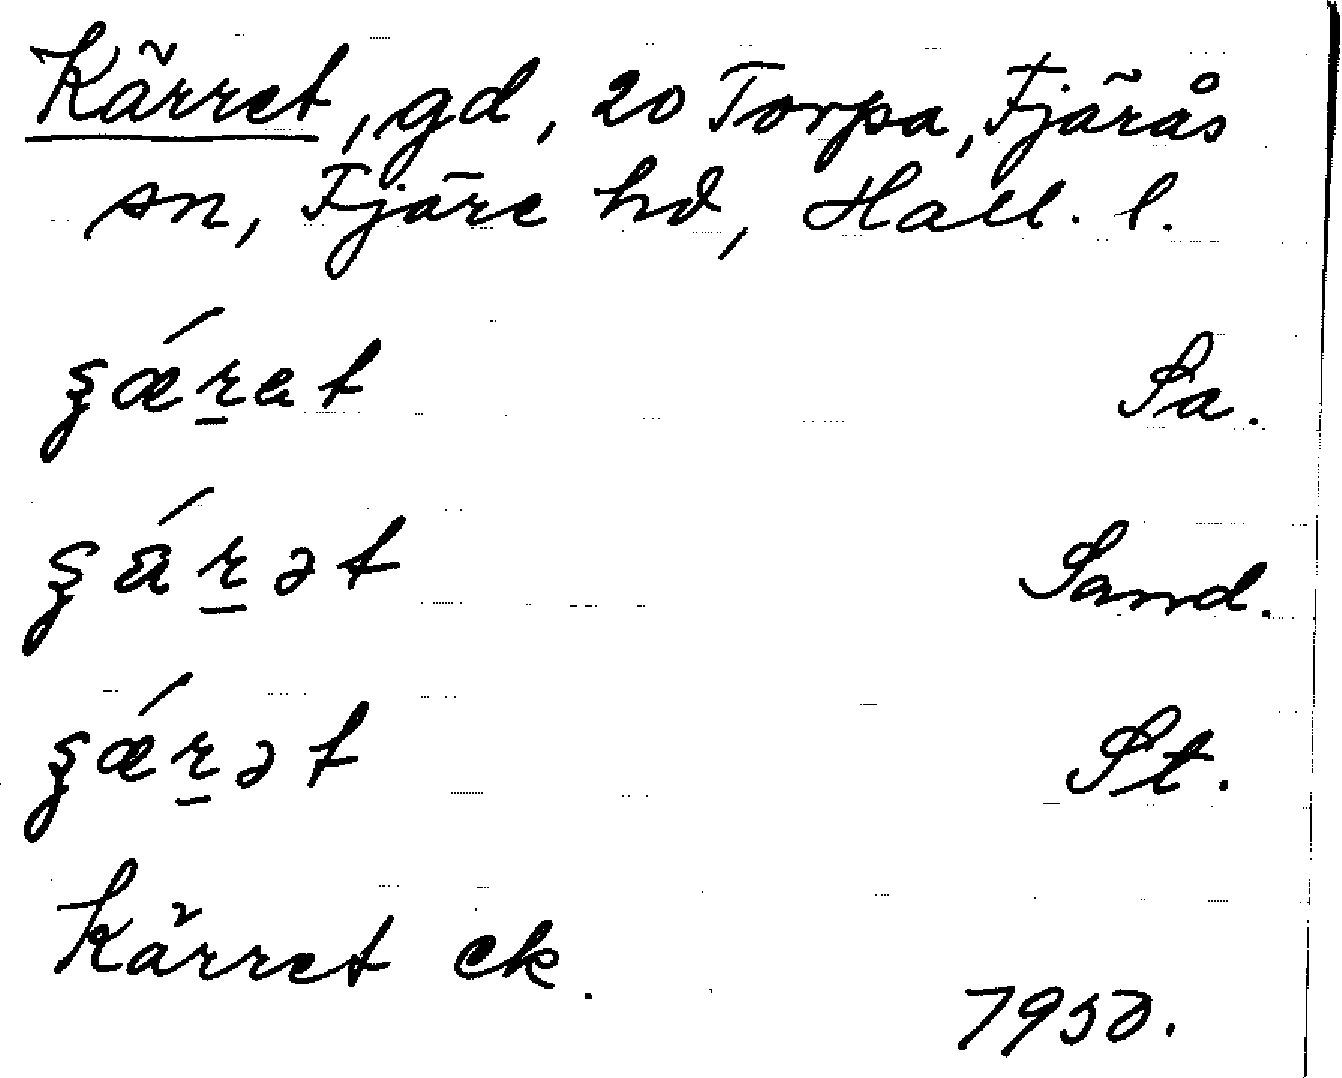 Kärret, gd, 20 Torpa, Fjärås
sn, Fjäre hd, Hall. l.
ʂǽr̲et Sa.
ʂä́r̲ət Sand.
ʂǽr̲ət St.
Kärret ek.
1950.